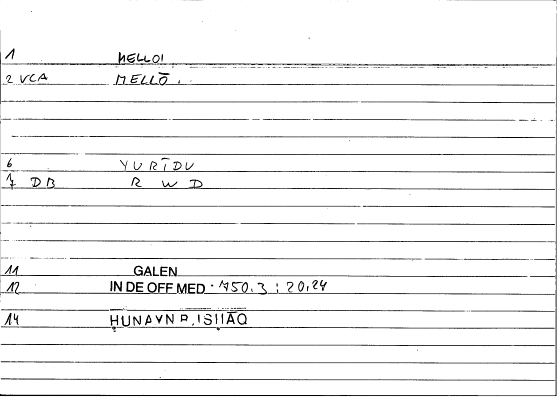 1 HELLO!
2 VCA MELLŌ.
6 YURĪDU
7 DB R W D
11 GALEN
12 IN DE OFF MED · 150.3 : 20,24
14 ḤUNAYN B. ISḤĀQ